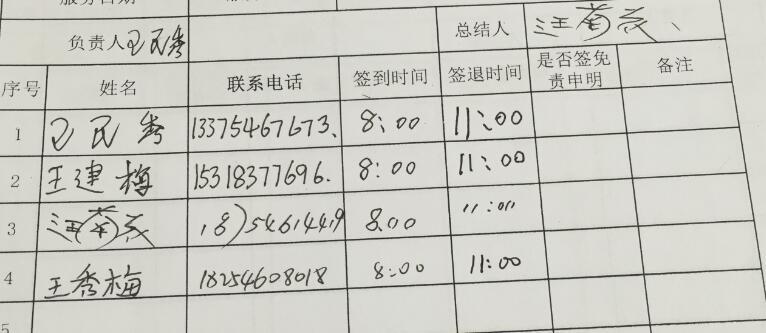 负责人 总结人
序号 姓名 联系电话 签到时间 签退时间 是否签免责申明 备注
1 13375467673. 8:00 11:00
2 王建梅 15318377696. 8:00 11:00
3 8:00 11:00
4 王秀梅 18254608018 8:00 11:00
5